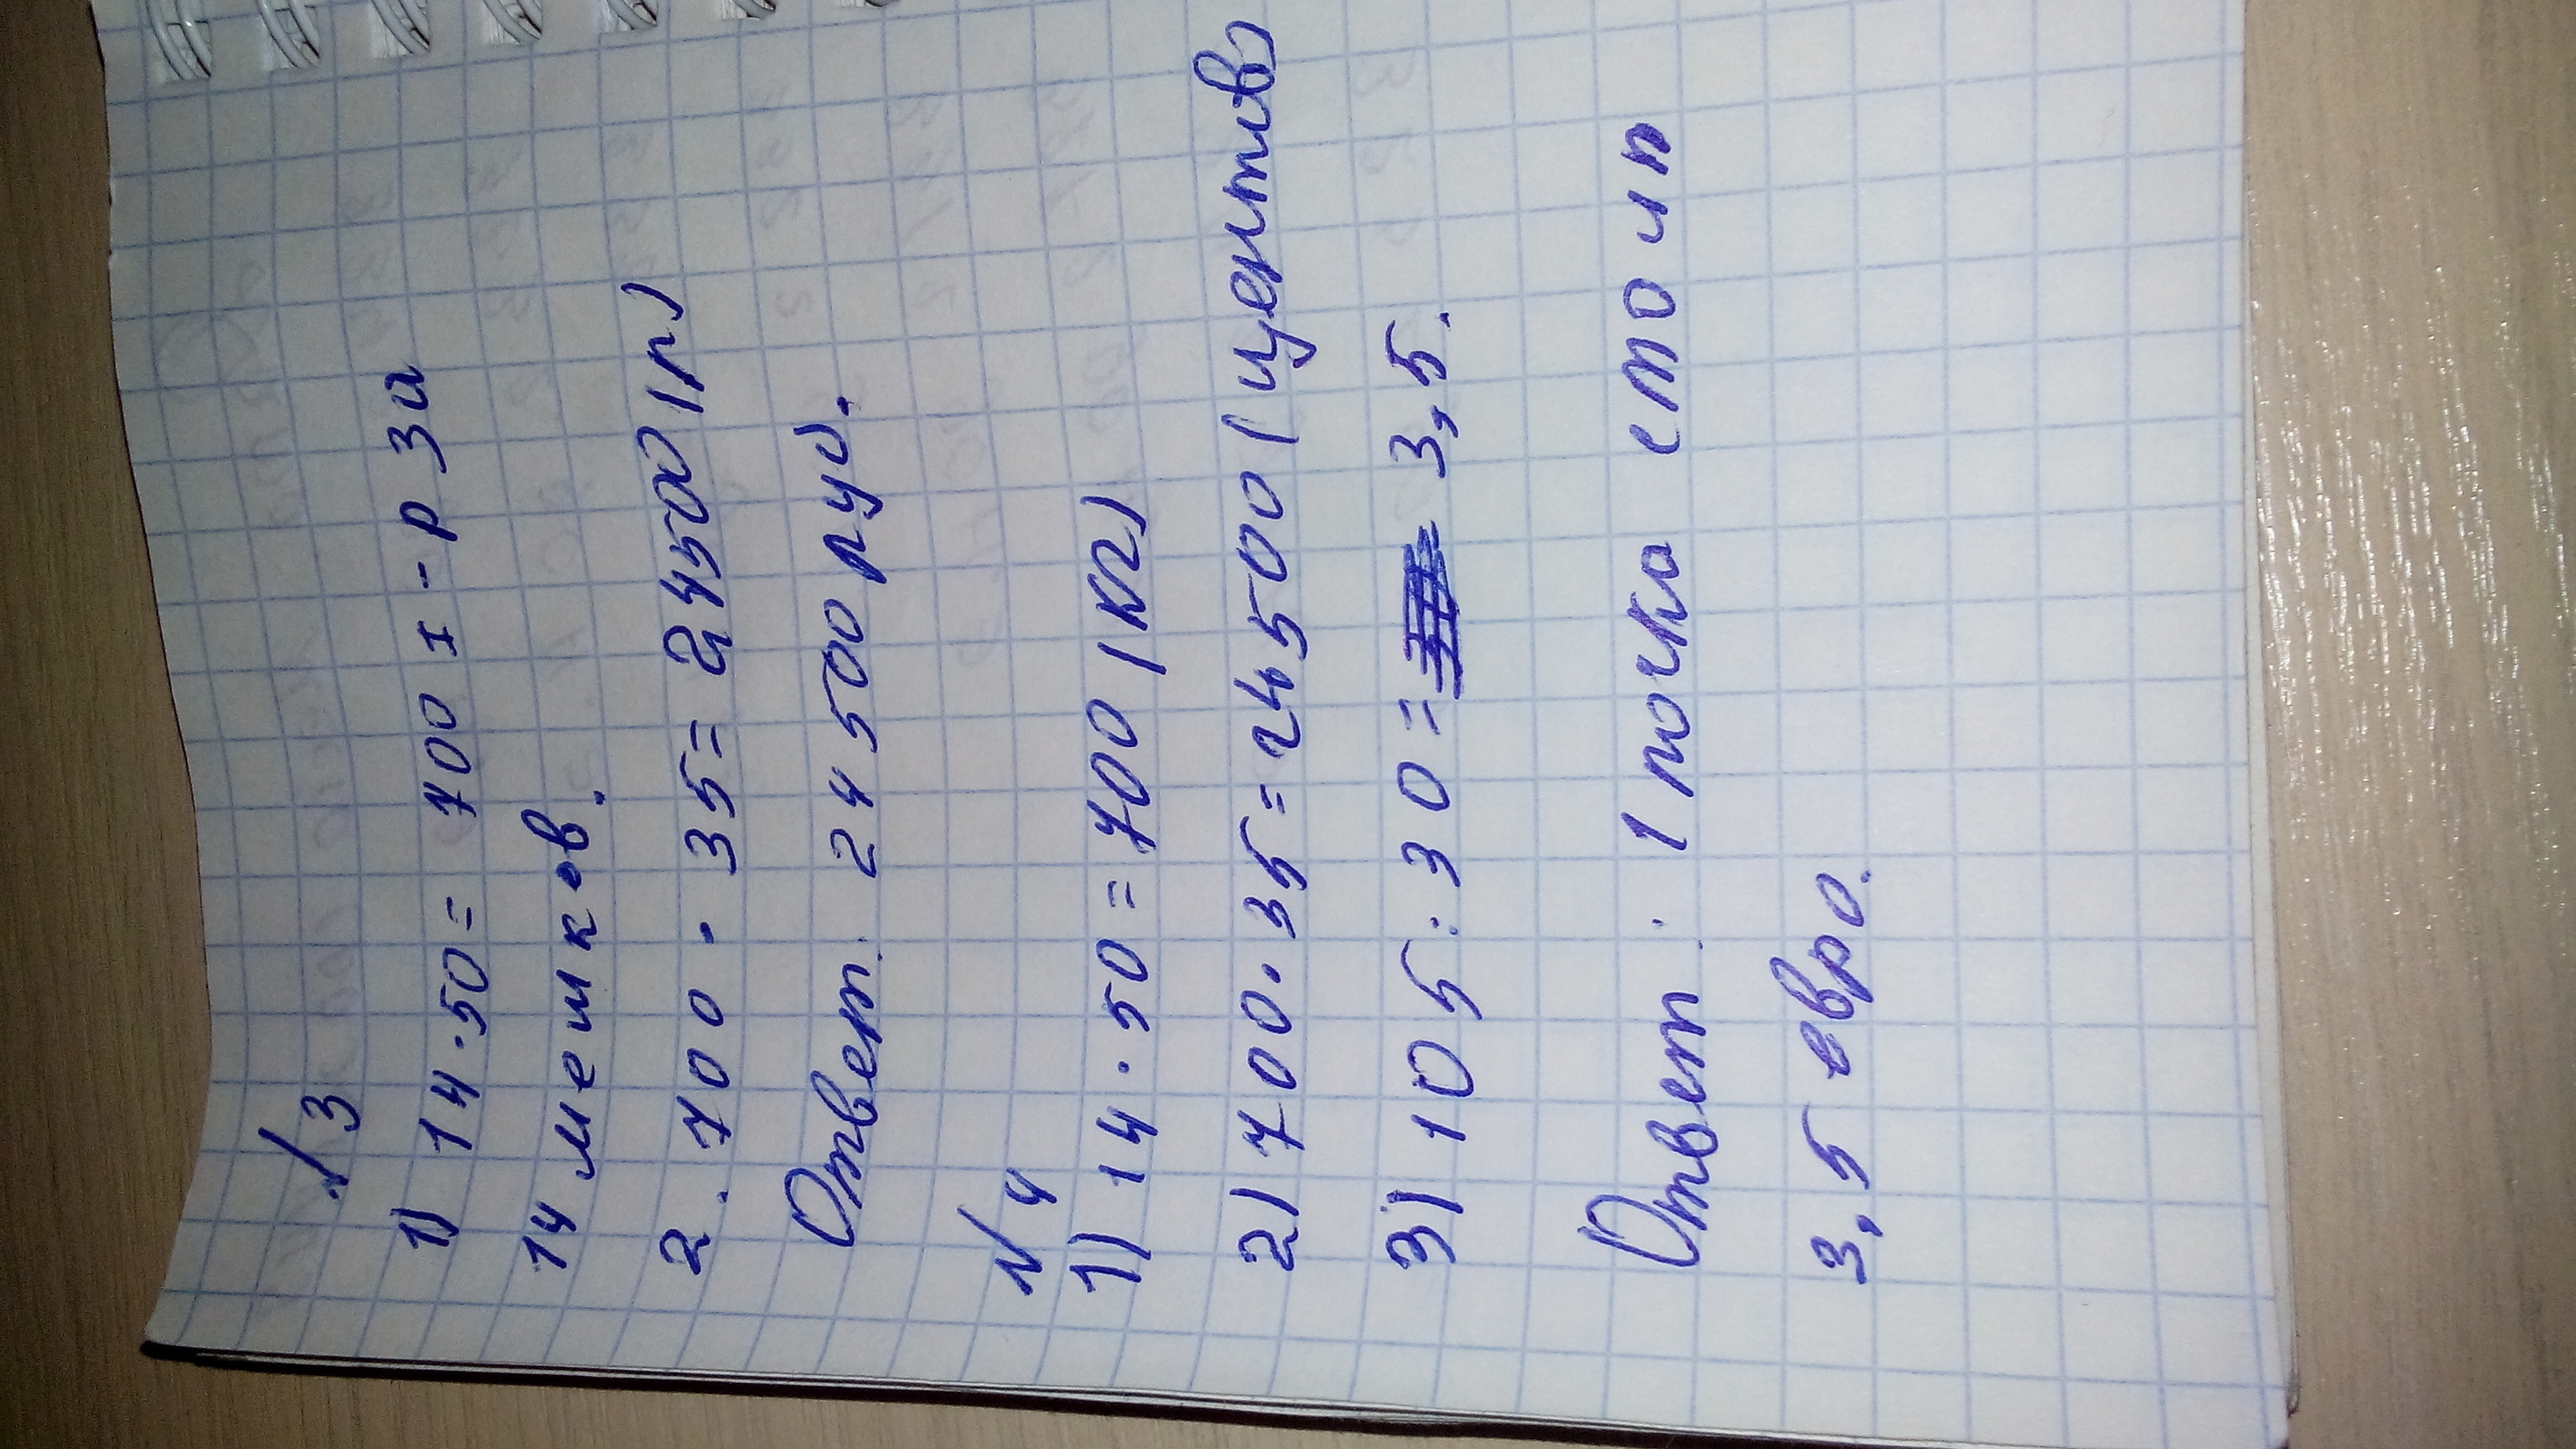 №3
1) 14·50= 700 х-р за
14 мешков.
2. 700·35=24500(р)
Ответ: 24500 руб.
№4
1) 14·50=700 (кг)
2) 700·35=24500 (центов)
3) 105:30= 3,5.
Ответ: 1 пачка стоит
3,5 евро.